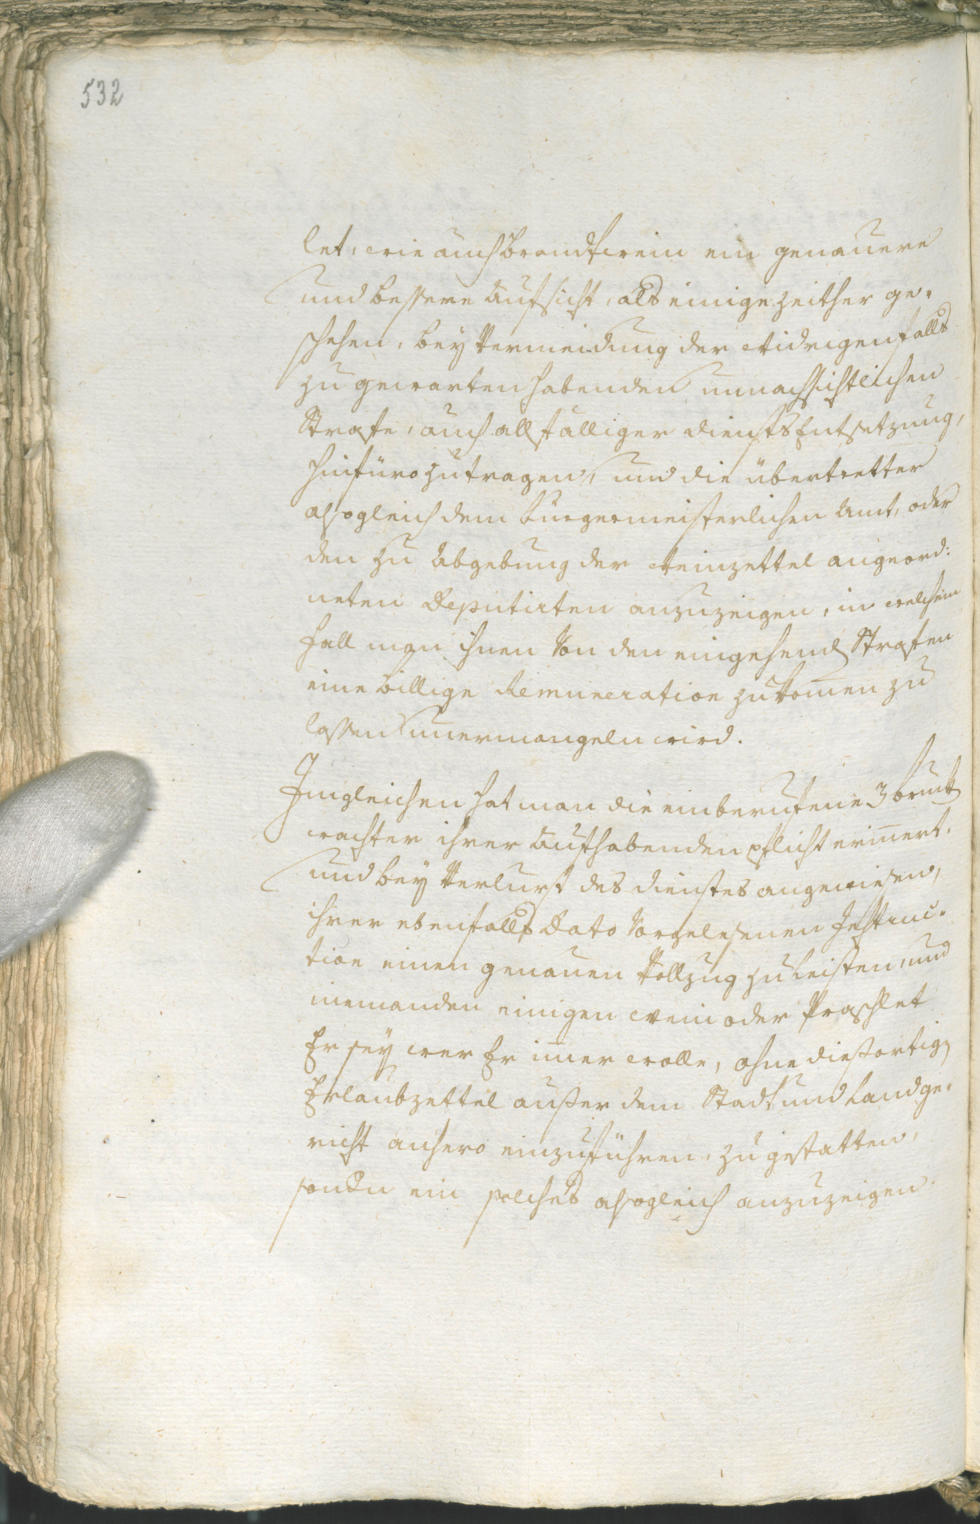 532
let, wie auch Brandtwein ein genauere
und bessere Aufsicht, als einige zeither ge-
schehen, bey Vermeidung der widrigenfalls
zu gewarten habenden unnachsichtlichen
Strafe, auch allfälliger diensts Entsetzung,
hinfüro zutragen, und die übertretter
alsogleich dem Burgermeisterlichen Amt, oder
den zu Abgebung der weinzettel angeord:
neten Deputirten anzuzeigen, in welchem
Fall man ihnen von den eingehend Strafen
eine billige Remuneration zukomen zu
lassen unermangeln wird.
Jngleichen hat man die einberufene 3
wachter ihrer aufhabenden pflicht erinnert,
und bey Verlurst des dienstes angewiesen,
ihrer ebenfalls Dato vorgelesenen Jnstruc-
tion einen genauen Vollzug zu leisten, und
niemanden einigen wein oder Praschlet
Er sey wer Er imer wolle, ohne diesortig
Erlaubzettel außer dem Stadt und Landge-
richt anhero einzuführen, zu gestatten,
sondern ein solches alsogleich anzuzeigen.